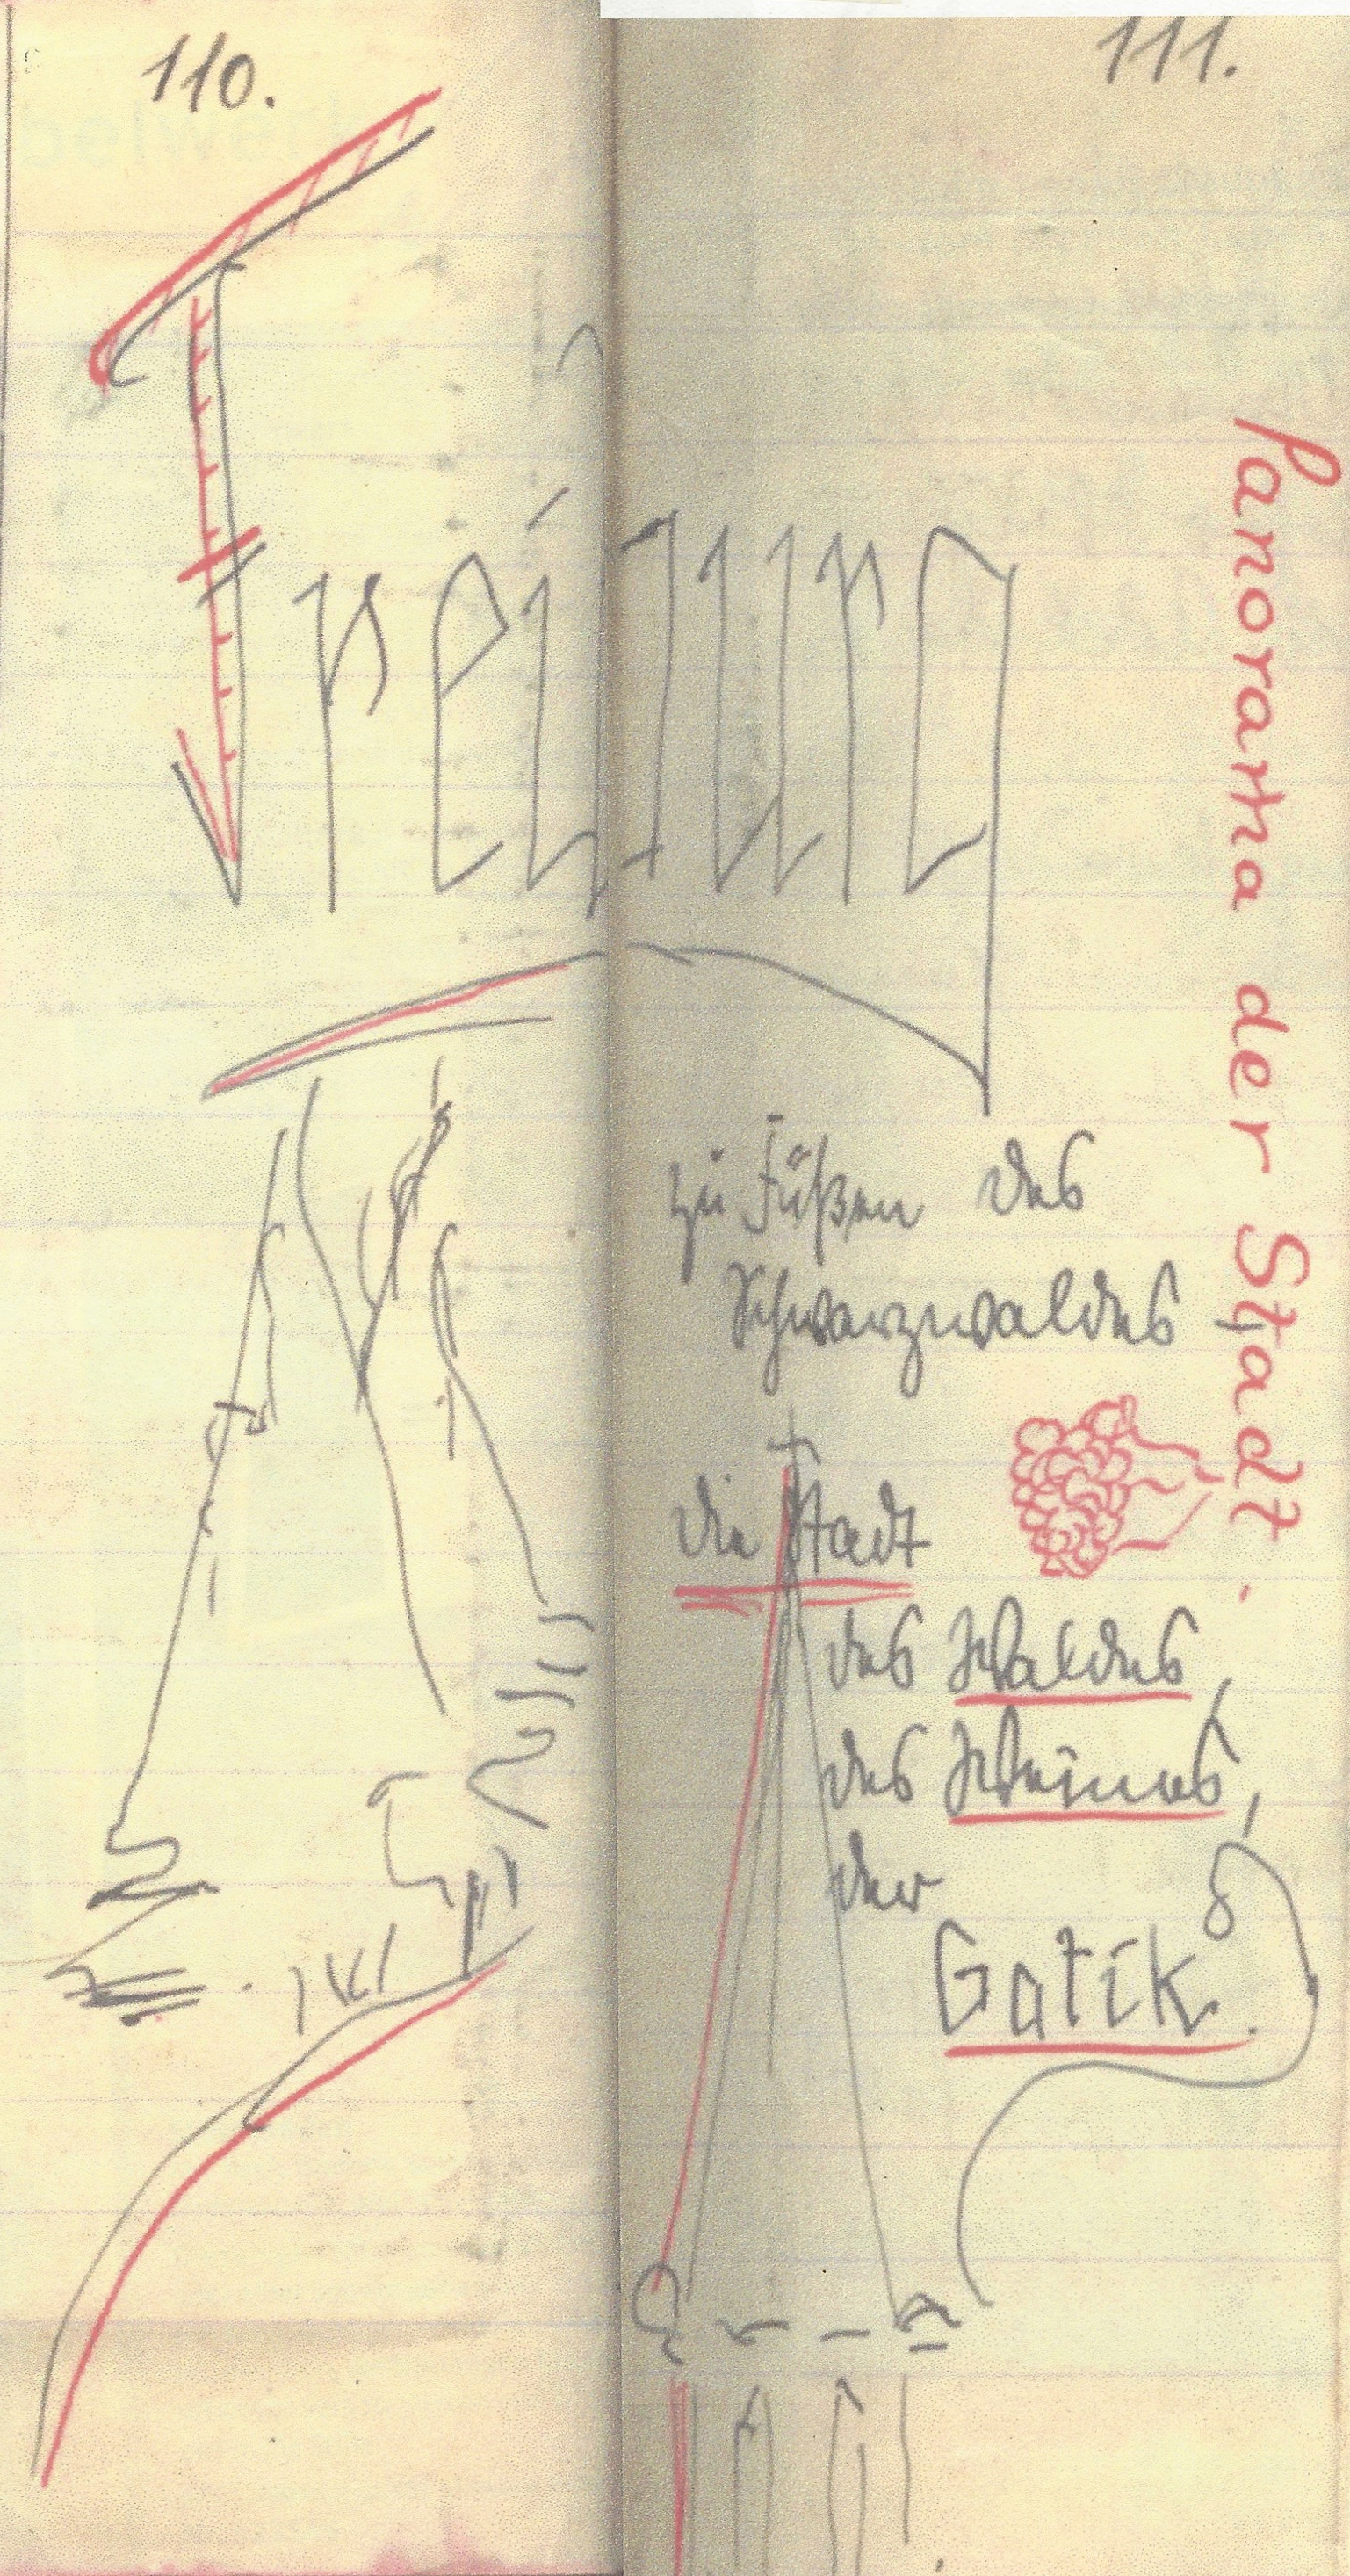 110.
111.
Freiburg
zu Füßen des
Schwarzwaldes
die Stadt
des Waldes,
des Weines,
der
Gotik.
Panorama der Stadt.